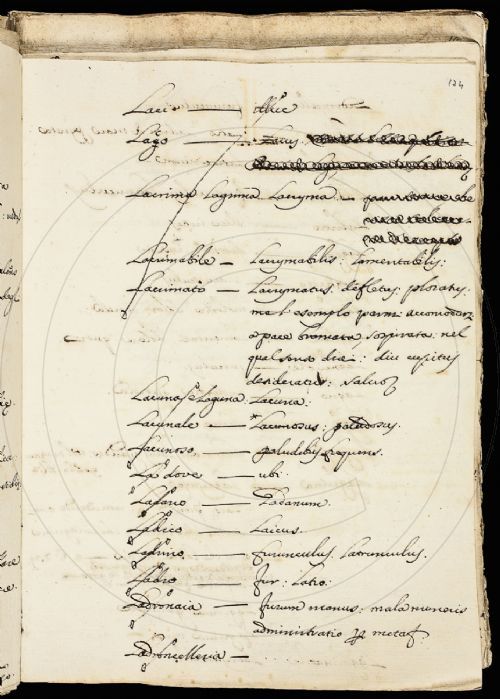 124
Laci — illic
Lago — Lacus
Lacrima Laguma Lacryma —
Lacrimabile — Lacrymabilis: lamentabilis:
Lacrimato — Lacrymatus: defletus: ploratus.
me l'esemplo parmi
a pace bramata, sospirata: nel
qual senso dice: diu cupitus
desideratus:
Lacuna, e Laguna Lacuna:
Lacunale — Lacunosus: paludosus.
Lacunoso — paludibus frequens.
La dove — ubi.
Ladano — Ladanum.
Ladico — Laicus.
Ladrino — furunculus, Latrunculus.
Ladro — fur: Latro:
Ladronaia — furum manus: mala muneris
administratio
Ladroncelleria —